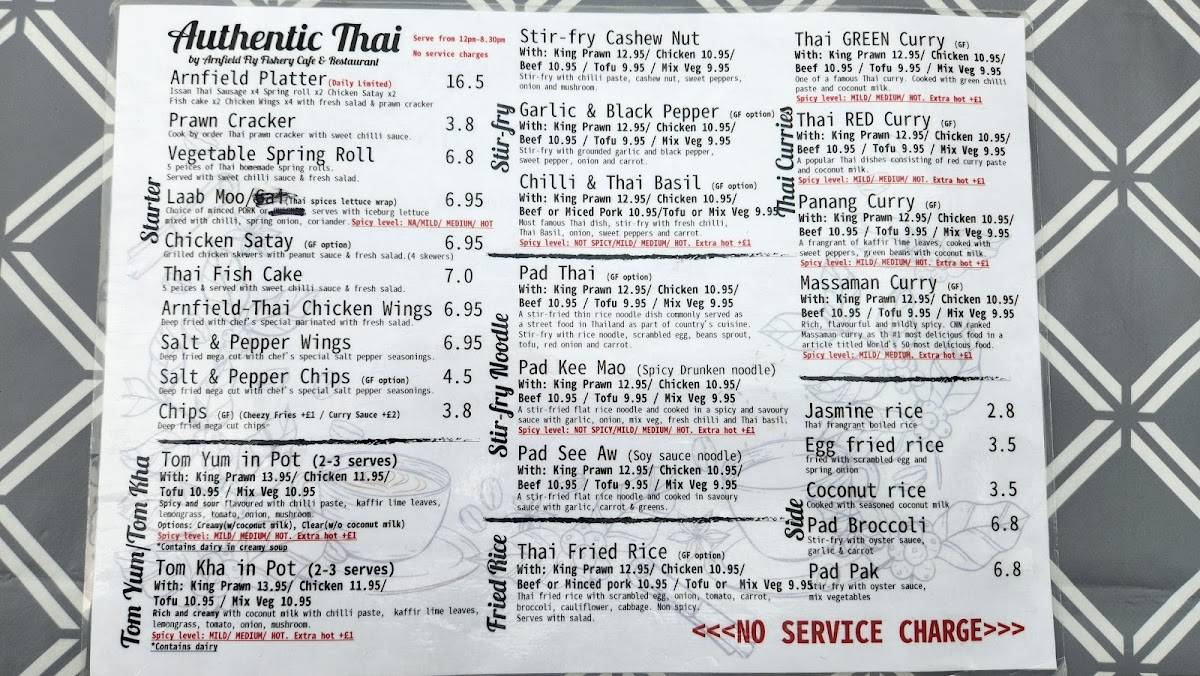 Authentic Thai
by Arnfield Fly Fishery Cafe & Restaurant
Serve from 12pm-8.30pm
No service charges
Starter
Arnfield Platter (Daily Limited) 16.5
Issan Thai Sausage x4 Spring roll x2 Chicken Satay x2
Fish cake x2 Chicken Wings x4 with fresh salad & prawn cracker
Prawn Cracker 3.8
Cook by order Thai prawn cracker with sweet chilli sauce.
Vegetable Spring Roll 6.8
5 peices of Thai homemade spring rolls.
Served with sweet chilli sauce & fresh salad.
Laab Moo/ (Thai spices lettuce wrap) 6.95
Choice of minced PORK or serves with iceburg lettuce
mixed with chilli, spring onion, coriander. Spicy level: NA/MILD/ MEDIUM/ HOT
Chicken Satay (GF option) 6.95
Grilled chicken skewers with peanut sauce & fresh salad.(4 skewers)
Thai Fish Cake 7.0
5 peices & served with sweet chilli sauce & fresh salad.
Arnfield-Thai Chicken Wings 6.95
Deep fried with chef's special marinated with fresh salad.
Salt & Pepper Wings 6.95
Deep fried mega cut with chef's special salt pepper seasonings.
Salt & Pepper Chips (GF option) 4.5
Deep fried mega cut with chef's special salt pepper seasonings.
Chips (GF) (Cheezy Fries +£1 / Curry Sauce +£2) 3.8
Deep fried mega cut chips
Tom Yum/Tom Kha
Tom Yum in Pot (2-3 serves)
With: King Prawn 13.95/ Chicken 11.95/
Tofu 10.95 / Mix Veg 10.95
Spicy and sour flavoured with chilli paste, kaffir lime leaves,
lemongrass, tomato, onion, mushroom.
Options: Creamy(w/coconut milk), Clear(w/o coconut milk)
Spicy level: MILD/ MEDIUM/ HOT. Extra hot +£1
*Contains dairy in creamy soup
Tom Kha in Pot (2-3 serves)
With: King Prawn 13.95/ Chicken 11.95/
Tofu 10.95 / Mix Veg 10.95
Rich and creamy with coconut milk with chilli paste, kaffir lime leaves,
lemongrass, tomato, onion, mushroom.
Spicy level: MILD/ MEDIUM/ HOT. Extra hot +£1
*Contains dairy
Stir-fry
Stir-fry Cashew Nut
With: King Prawn 12.95/ Chicken 10.95/
Beef 10.95 / Tofu 9.95 / Mix Veg 9.95
Stir-fry with chilli paste, cashew nut, sweet peppers,
onion and mushroom.
Garlic & Black Pepper (GF option)
With: King Prawn 12.95/ Chicken 10.95/
Beef 10.95 / Tofu 9.95 / Mix Veg 9.95
Stir-fry with grounded garlic and black pepper,
sweet pepper, onion and carrot.
Chilli & Thai Basil (GF option)
With: King Prawn 12.95/ Chicken 10.95/
Beef or Miced Pork 10.95/Tofu or Mix Veg 9.95
Most famous Thai dish, stir-fry with fresh chilli,
Thai Basil, onion, sweet peppers and carrot.
Spicy level: NOT SPICY/MILD/ MEDIUM/ HOT. Extra hot +£1
Stir-fry Noodle
Pad Thai (GF option)
With: King Prawn 12.95/ Chicken 10.95/
Beef 10.95 / Tofu 9.95 / Mix Veg 9.95
A stir-fried thin rice noodle dish commonly served as
a street food in Thailand as part of country's cuisine.
Stir-fry with rice noodle, scrambled egg, beans sprout,
tofu, red onion and carrot.
Pad Kee Mao (Spicy Drunken noodle)
With: King Prawn 12.95/ Chicken 10.95/
Beef 10.95 / Tofu 9.95 / Mix Veg 9.95
A stir-fried flat rice noodle and cooked in a spicy and savoury
sauce with garlic, onion, mix veg, fresh chilli and Thai basil.
Spicy level: NOT SPICY/MILD/ MEDIUM/ HOT. Extra hot +£1
Pad See Aw (Soy sauce noodle)
With: King Prawn 12.95/ Chicken 10.95/
Beef 10.95 / Tofu 9.95 / Mix Veg 9.95
A stir-fried flat rice noodle and cooked in savoury
sauce with garlic, carrot & greens.
Fried Rice
Thai Fried Rice (GF option)
With: King Prawn 12.95/ Chicken 10.95/
Beef or Minced pork 10.95 / Tofu or Mix Veg 9.95
Thai fried rice with scrambled egg, onion, tomato, carrot,
broccoli, cauliflower, cabbage. Non spicy.
Serves with salad.
Thai Curries
Thai GREEN Curry (GF)
With: King Prawn 12.95/ Chicken 10.95/
Beef 10.95 / Tofu 9.95 / Mix Veg 9.95
One of a famous Thai curry. Cooked with green chilli
paste and coconut milk.
Spicy level: MILD/ MEDIUM/ HOT. Extra hot +£1
Thai RED Curry (GF)
With: King Prawn 12.95/ Chicken 10.95/
Beef 10.95 / Tofu 9.95 / Mix Veg 9.95
A popular Thai dishes consisting of red curry paste
and coconut milk.
Spicy level: MILD/ MEDIUM/ HOT. Extra hot +£1
Panang Curry (GF)
With: King Prawn 12.95/ Chicken 10.95/
Beef 10.95 / Tofu 9.95 / Mix Veg 9.95
A frangrant of kaffir lime leaves, cooked with
sweet peppers, green beans with coconut milk.
Spicy level: MILD/ MEDIUM/ HOT. Extra hot +£1
Massaman Curry (GF)
With: King Prawn 12.95/ Chicken 10.95/
Beef 10.95 / Tofu 9.95 / Mix Veg 9.95
Rich, flavourful and mildly spicy. CNN ranked
Massaman curry as th #1 most delicious food in a
article titled World's 50 most delicious food.
Spicy level: MILD/ MEDIUM. Extra hot +£1
Side
Jasmine rice 2.8
Thai frangrant boiled rice
Egg fried rice 3.5
fried with scrambled egg and
spring onion
Coconut rice 3.5
Cooked with seasoned coconut milk
Pad Broccoli 6.8
Stir-fry with oyster sauce,
garlic & carrot
Pad Pak 6.8
Stir-fry with oyster sauce,
mix vegetables
<<<NO SERVICE CHARGE>>>